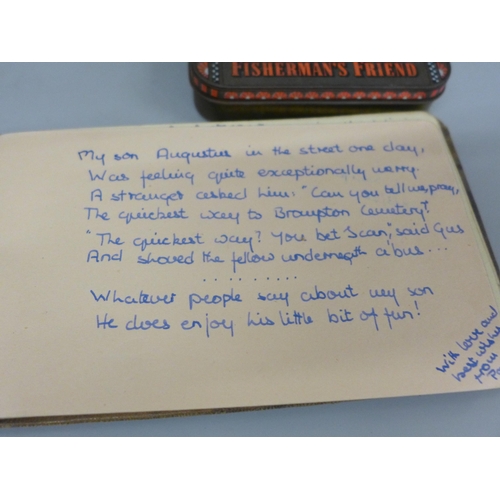 FISHERMAN'S FRIEND
My son Augustus in the street one day,
Was feeling quite exceptionally merry.
A stranger asked him: "Can you tell us, pray,
The quickest way to Brompton Cemetery?"
"The quickest way? You bet I can," said Gus
And shoved the fellow underneath a bus...
..........
Whatever people say about my son
He does enjoy his little bit of fun!
With love and
best wishes
from